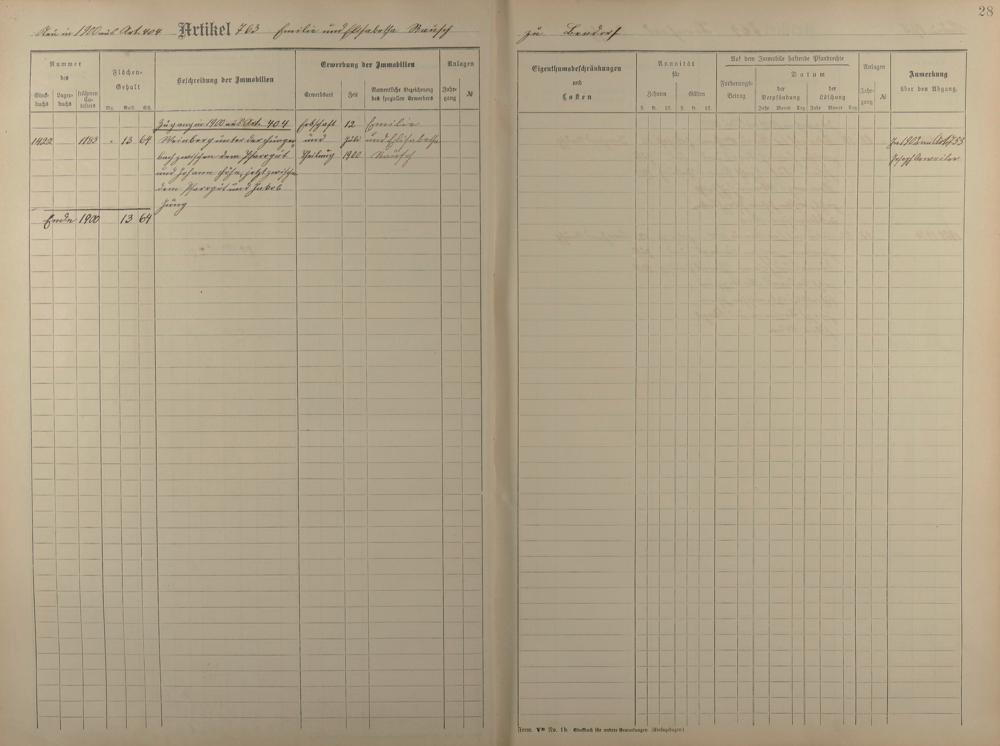 28
Neu in 1900 aus Art. 404 Artikel 763 Emilie und Elisabetha Rausch
zu Bendorf
Nummer
des
Stock-
buchs
Lager-
buchs
früheren
Ca-
tasters
Flächen-
Gehalt
Mg. Ruth. Sch.
Beschreibung der Immobilien
Erwerbung der Immobilien
Erwerbsart
Zeit
Namentliche Bezeichnung
des speziellen Erwerbers
Anlagen
Jahr-
gang
№
Zugang in 1900 aus Art. 404
1422 1183 13 64
Weinberg unter der
zwischen dem Pfarrgut
und Johann jetzt zwischen
dem Pfarrgut und Jakob
Jung
Erbschaft
und
Theilung
12
Juli
1900
Emilie
und Elisabetha
Rausch
Ende 1900 13 64
Eigenthumsbeschränkungen
und
Lasten
Annuität
für
Zehnten
Gülten
fl. kr. hl. fl. kr. hl.
Auf dem Immobile haftende Pfandrechte
Forderungs-
Betrag
Datum
der
Verpfändung
der
Löschung
Jahr Monat Tag Jahr Monat Tag
Anlagen
Jahr-
gang
№
Anmerkung
über den Abgang.
In 1902 an Art.
Joseph
Form. Va No. 1b. Stockbuch für andere Gemarkungen (Einlagebogen)